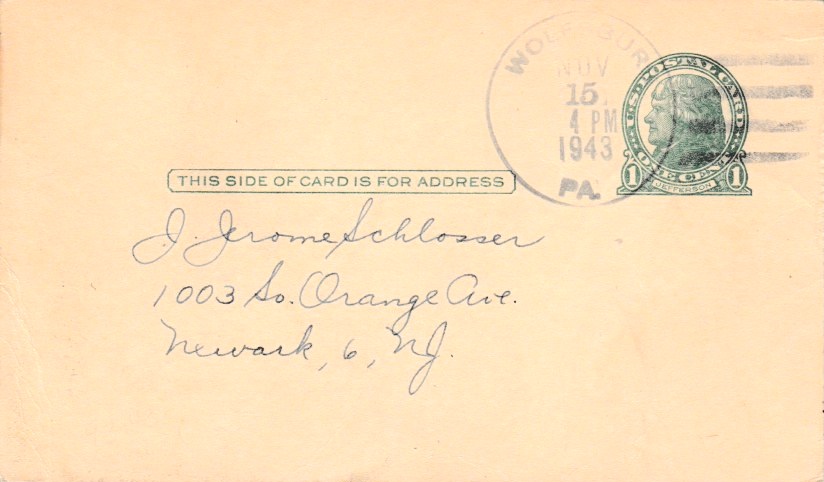 WOLFSBURG
NOV
15
4 PM
1943
PA.
U.S. POSTAL CARD
ONE CENT
1 JEFFERSON 1
THIS SIDE OF CARD IS FOR ADDRESS
J. Jerome Schlosser
1003 So. Orange Ave.
Newark, 6, NJ.